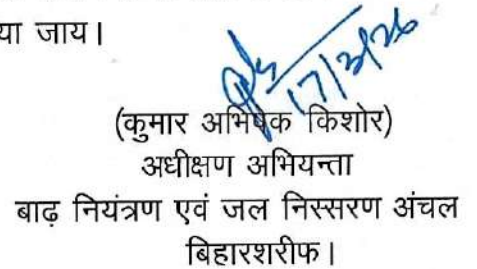 या जाय।
17/3/26
(कुमार अभिषेक किशोर)
अधीक्षण अभियन्ता
बाढ़ नियंत्रण एवं जल निस्सरण अंचल
बिहारशरीफ।